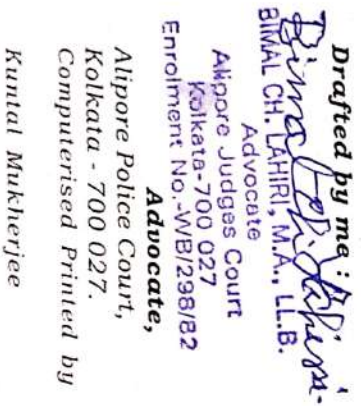 Drafted by me :
Bimal Ch. Lahiri.
BIMAL CH. LAHIRI, M.A., LL.B.
Advocate
Alipore Judges Court
Kolkata-700 027
Enrolment No.-WB/298/82
Advocate,
Alipore Police Court,
Kolkata - 700 027.
Computerised Printed by
Kuntal Mukherjee